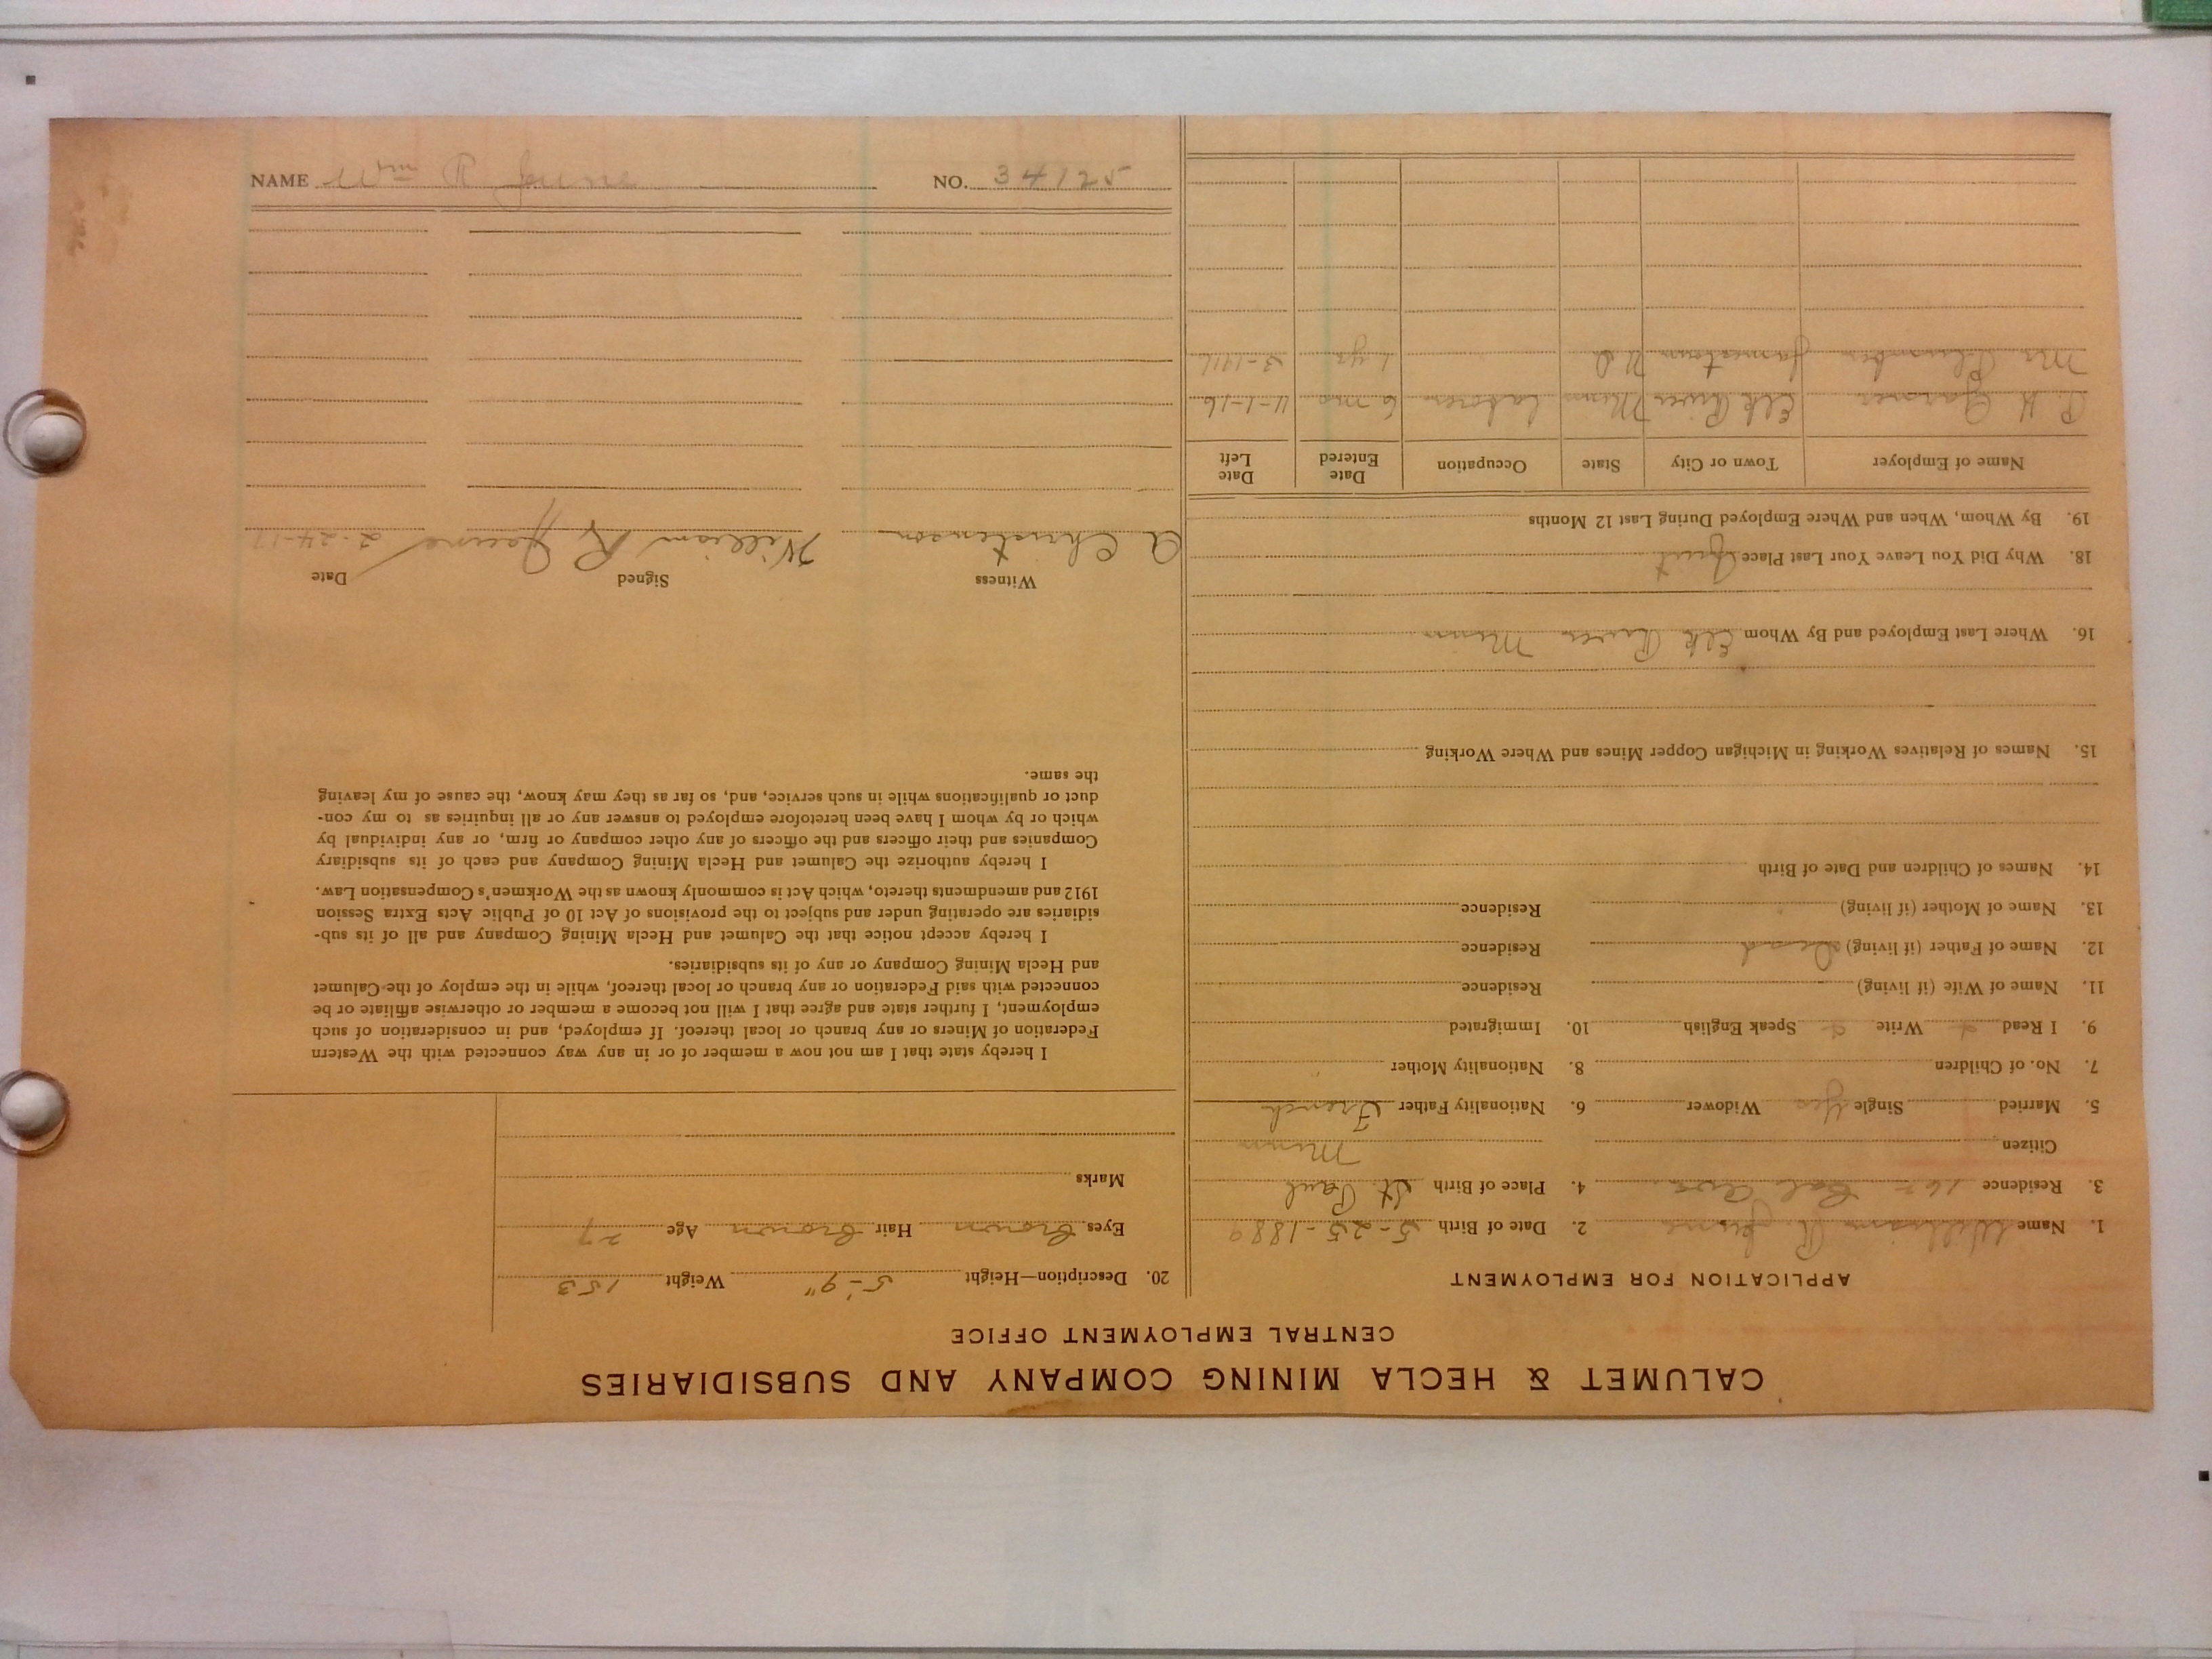 CALUMET & HECLA MINING COMPANY AND SUBSIDIARIES
CENTRAL EMPLOYMENT OFFICE
APPLICATION FOR EMPLOYMENT
1. Name William R. June 2. Date of Birth 5-25-1889
3. Residence 162 Cal Ave. 4. Place of Birth St. Paul
Citizen Minn
5. Married Single Yes Widower 6. Nationality Father French
7. No. of Children 8. Nationality Mother "
9. I Read Write Speak English 10. Immigrated
11. Name of Wife (if living) Residence
12. Name of Father (if living) Dead Residence
13. Name of Mother (if living) " Residence
14. Names of Children and Date of Birth
15. Names of Relatives Working in Michigan Copper Mines and Where Working
16. Where Last Employed and By Whom Elk River Minn
18. Why Did You Leave Your Last Place Quit
19. By Whom, When and Where Employed During Last 12 Months
Name of Employer Town or City State Occupation Date Entered Date Left
Elk River Minn Laborer 6 mo 11-1-16
Jamestown N.D. 1 yr 3-1916
20. Description—Height 5-'9" Weight 153
Eyes Brown Hair Brown Age 27
Marks
I hereby state that I am not now a member of or in any way connected with the Western
Federation of Miners or any branch or local thereof. If employed, and in consideration of such
employment, I further state and agree that I will not become a member or otherwise affiliate or be
connected with said Federation or any branch or local thereof, while in the employ of the Calumet
and Hecla Mining Company or any of its subsidiaries.
I hereby accept notice that the Calumet and Hecla Mining Company and all of its sub-
sidiaries are operating under and subject to the provisions of Act 10 of Public Acts Extra Session
1912 and amendments thereto, which Act is commonly known as the Workmen's Compensation Law.
I hereby authorize the Calumet and Hecla Mining Company and each of its subsidiary
Companies and their officers and the officers of any other company or firm, or any individual by
which or by whom I have been heretofore employed to answer any or all inquiries as to my con-
duct or qualifications while in such service, and, so far as they may know, the cause of my leaving
the same.
Witness Signed Date
A Christenson William R. June 2-24-17
NAME Wm R June NO. 34125